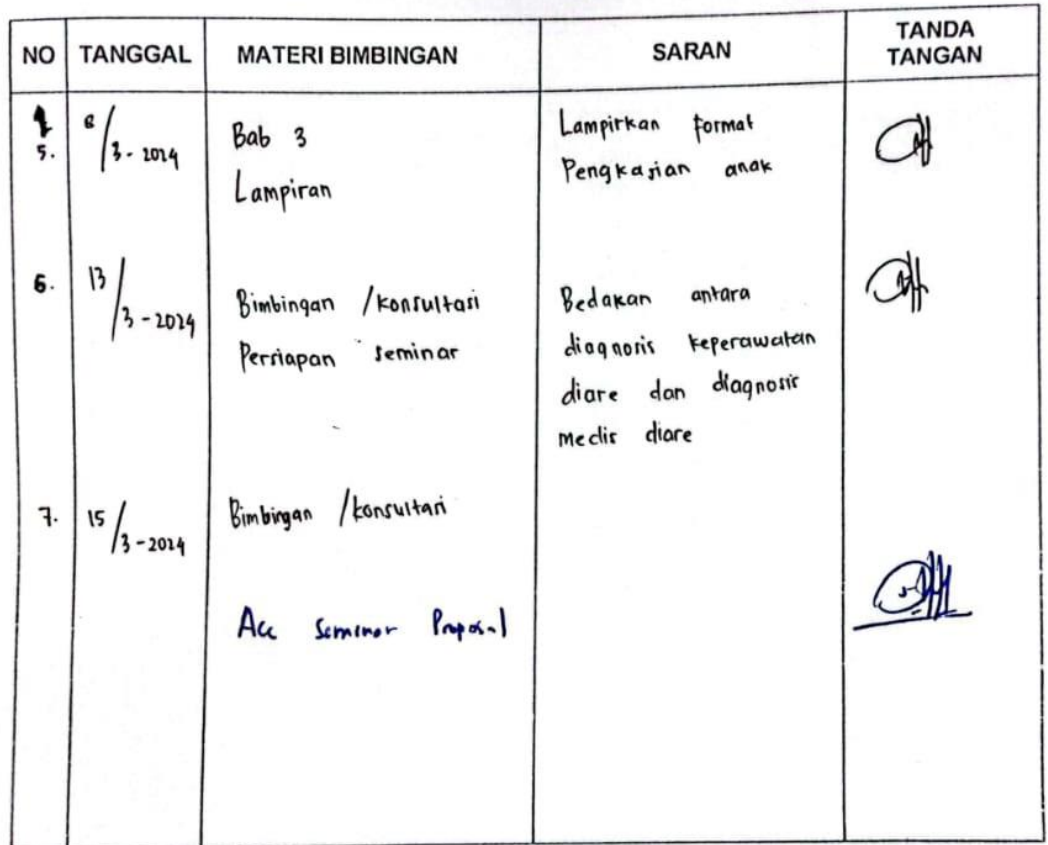 NO TANGGAL MATERI BIMBINGAN SARAN TANDA TANGAN
5. 8/3-2024 Bab 3 Lampirkan format
Lampiran Pengkajian anak
6. 13/3-2024 Bimbingan /konsultasi Bedakan antara
Persiapan seminar diagnosis keperawatan
diare dan diagnosis
medis diare
7. 15/3-2024 Bimbingan /konsultasi
Acc Seminar Proposal